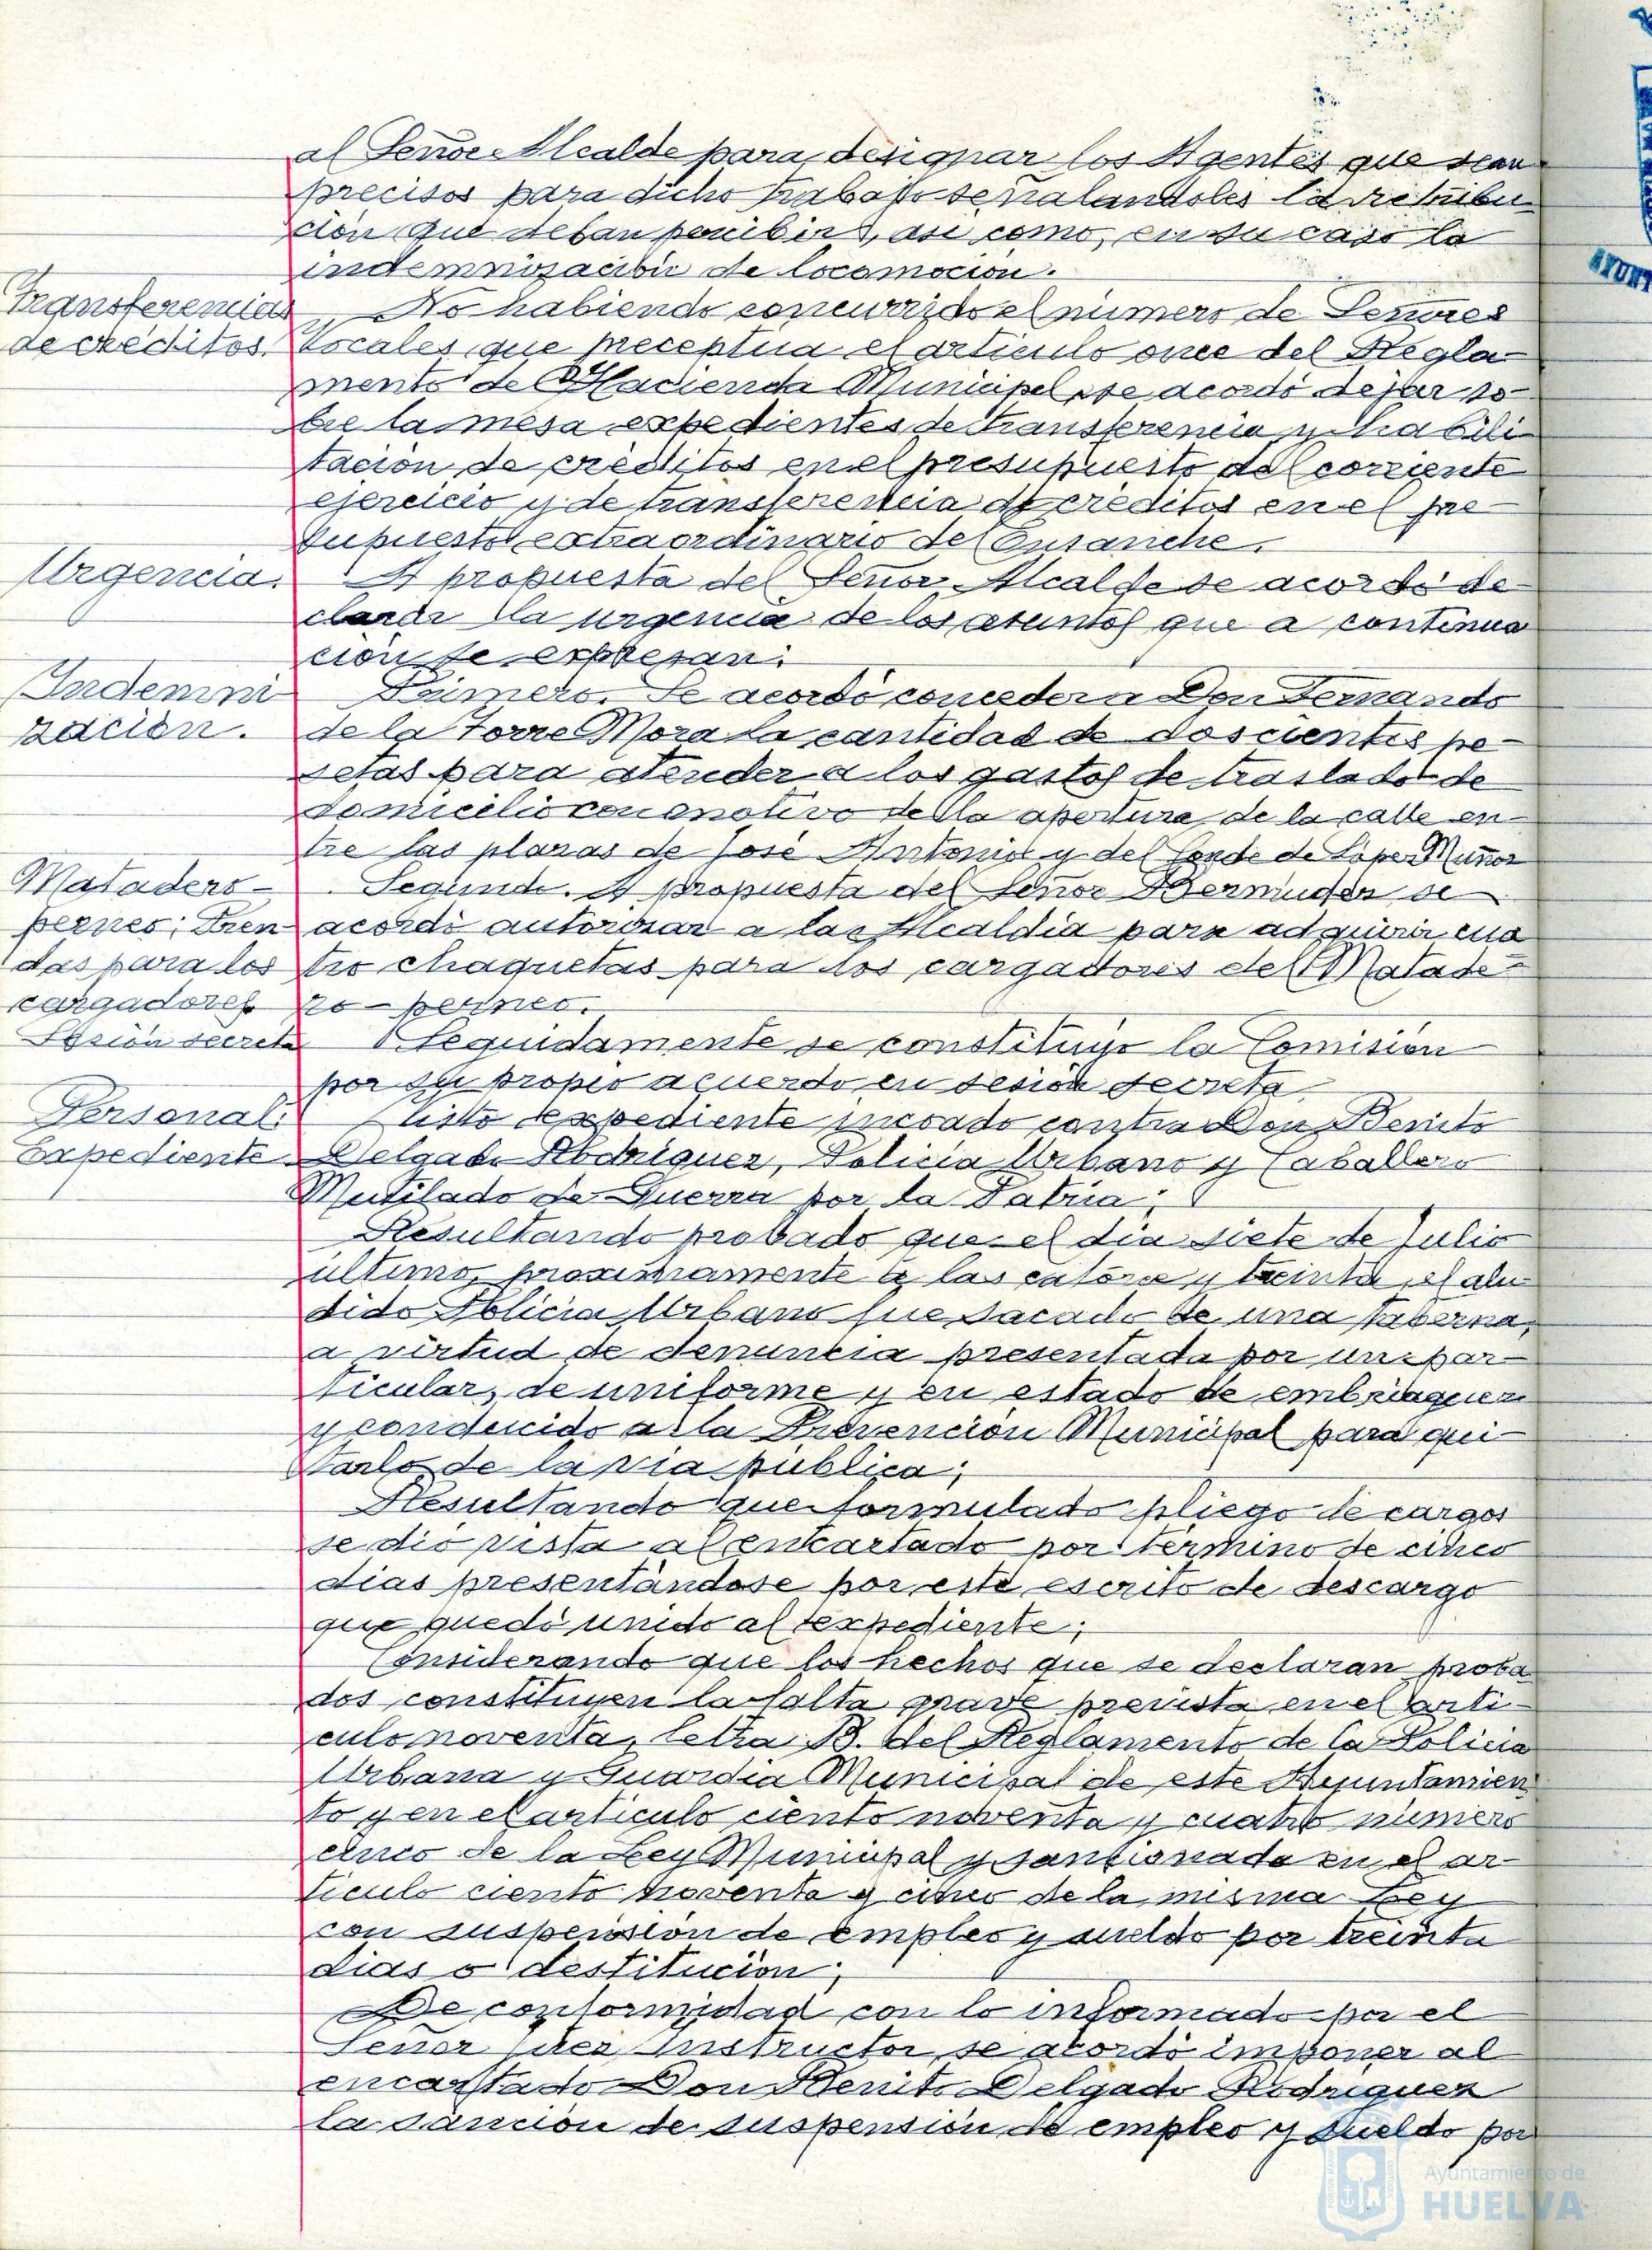 al Señor Alcalde para designar los Agentes que sean
precisos para dicho trabajo señalandoles la retribu-
ción que deban percibir, asi como, en su caso la
indemnización de locomoción.
Transferencias
de créditos.
No habiendo concurrido el número de Señores
Vocales que preceptúa el articulo once del Regla-
mento de Hacienda Municipal, se acordó dejar so-
bre la mesa expedientes de transferencia y habili-
tación de créditos en el presupuesto del corriente
ejercicio y de transferencia de créditos en el pre-
supuesto extraordinario del Ensanche.
Urgencia.
A propuesta del Señor Alcalde se acordó de-
clarar la urgencia de los asuntos que a continua
ción se expresan:
Indemni
zación.
Primero. Se acordó conceder a Don Fernando
de la Torre Mora la cantidad de doscientas pe-
setas para atender a los gastos de traslado de
domicilio con motivo de la apertura de la calle en-
tre las plazas de José Antonio y del Conde de López Muñoz
Matadero-
pernes; Pren
das para los
cargadores
Segundo. A propuesta del Señor Bermúdez se
acordó autorizar a la Alcaldía para adquirir cua
tro chaquetas para los cargadores del Matade-
ro-pernes.
Sesión secreta
Seguidamente se constituyó la Comisión
por su propio acuerdo en sesión secreta.
Personal:
Expediente
Visto expediente incoado contra Don Benito
Delgado Rodríguez, Policía Urbano y Caballero
Mutilado de Guerra por la Patria;
Resultando probado que el día siete de Julio
último, proximamente a las catorce y treinta, el alu
dido Policía Urbano fue sacado de una taberna,
a virtud de denuncia presentada por un par-
ticular, de uniforme y en estado de embriaguez
y conducido a la Prevención Municipal para qui-
tarlo de la vía pública;
Resultando que formulado pliego de cargos
se dió vista al encartado por término de cinco
días presentándose por este escrito de descargo
que quedó unido al expediente;
Considerando que los hechos que se declaran proba
dos constituyen la falta grave prevista en el arti-
culo noventa, letra B. del Reglamento de la Policia
Urbana y Guardia Municipal de este Ayuntamien
to y en el articulo ciento noventa y cuatro número
cinco de la Ley Municipal y sancionada en el ar-
ticulo ciento noventa y cinco de la misma Ley
con suspensión de empleo y sueldo por treinta
dias o destitución;
De conformidad con lo informado por el
Señor Juez Instructor, se acordó imponer al
encartado Don Benito Delgado Rodríguez
la sanción de suspensión de empleo y sueldo por
Ayuntamiento de
HUELVA